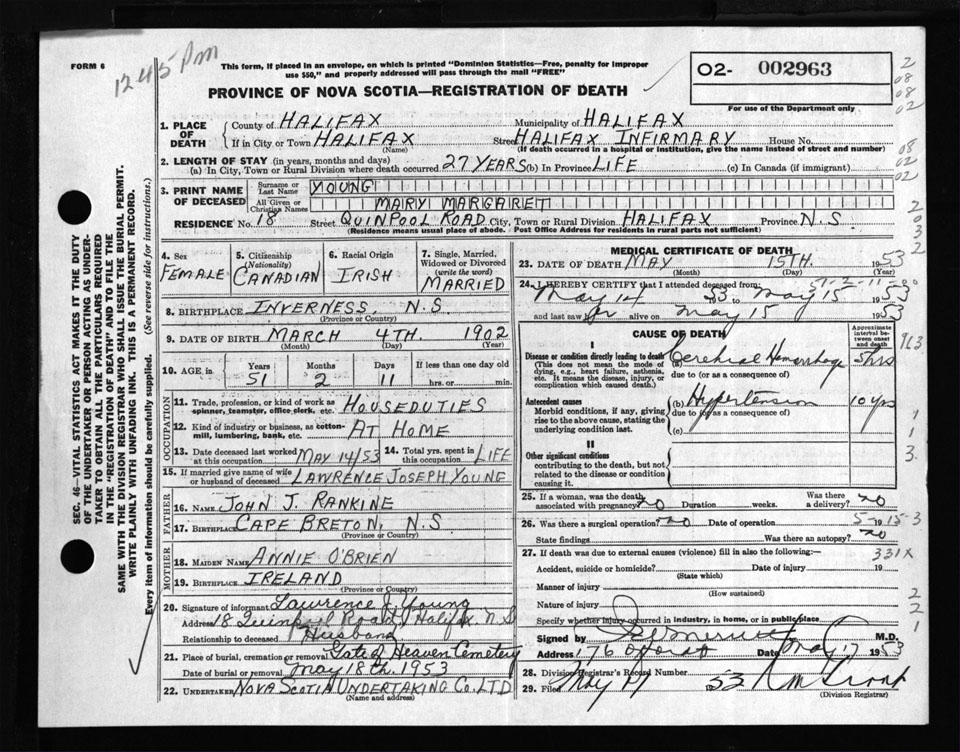 FORM 6
1245 PM
This form, if placed in an envelope, on which is printed "Dominion Statistics—Free, penalty for improper
use $50," and properly addressed will pass through the mail "FREE"
PROVINCE OF NOVA SCOTIA—REGISTRATION OF DEATH
02- 002963
For use of the Department only
1. PLACE OF DEATH { County of HALIFAX Municipality of HALIFAX
If in City or Town HALIFAX (Name) Street HALIFAX INFIRMARY House No.
(If death occurred in a hospital or institution, give the name instead of street and number)
2. LENGTH OF STAY (in years, months and days)
(a) In City, Town or Rural Division where death occurred 27 YEARS (b) In Province LIFE (c) In Canada (if immigrant)
3. PRINT NAME OF DECEASED { Surname or Last Name YOUNG
All Given or Christian Names MARY MARGARET
RESIDENCE No. 18 Street QUINPOOL ROAD City, Town or Rural Division HALIFAX Province N.S
(Residence means usual place of abode. Post Office Address for residents in rural parts not sufficient)
4. Sex FEMALE
5. Citizenship (Nationality) CANADIAN
6. Racial Origin IRISH
7. Single, Married, Widowed or Divorced (write the word) MARRIED
8. BIRTHPLACE INVERNESS, N.S
(Province or Country)
9. DATE OF BIRTH MARCH 4TH. 1902
(Month) (Day) (Year)
10. AGE IN Years 51 Months 2 Days 11 If less than one day old hrs. or min.
OCCUPATION
11. Trade, profession, or kind of work as spinner, teamster, office clerk, etc. HOUSEDUTIES
12. Kind of industry or business, as cotton-mill, lumbering, bank, etc. AT HOME
13. Date deceased last worked at this occupation MAY 14/53 14. Total yrs. spent in this occupation LIFE
15. If married give name of wife or husband of deceased LAWRENCE JOSEPH YOUNG
FATHER
16. NAME JOHN J. RANKINE
17. BIRTHPLACE CAPE BRETON, N.S
(Province or Country)
MOTHER
18. MAIDEN NAME ANNIE O'BRIEN
19. BIRTHPLACE IRELAND
(Province or Country)
20. Signature of informant Lawrence J. Young
Address 18 Quinpool Road, Halifax N.S
Relationship to deceased Husband
21. Place of burial, cremation or removal Gate of Heaven Cemetery
Date of burial or removal May 18th. 1953
22. UNDERTAKER NOVA SCOTIA UNDERTAKING CO. LTD
(Name and address)
MEDICAL CERTIFICATE OF DEATH
23. DATE OF DEATH MAY 15TH. 1953
(Month) (Day) (Year)
24. I HEREBY CERTIFY that I attended deceased from:
May 14 1953 to May 15 1953
and last saw her alive on May 15 1953
CAUSE OF DEATH
Approximate interval between onset and death
I
Disease or condition directly leading to death (a) Cerebral Hemorrhage 5 hrs
(This does not mean the mode of dying, e.g., heart failure, asthenia, etc. It means the disease, injury, or complication which caused death.)
due to (or as a consequence of)
Antecedent causes (b) Hypertension 10 yrs
Morbid conditions, if any, giving rise to the above cause, stating the underlying condition last.
due to (or as a consequence of)
(c)
II
Other significant conditions
contributing to the death, but not related to the disease or condition causing it.
25. If a woman, was the death associated with pregnancy? no Duration weeks. Was there a delivery? no
26. Was there a surgical operation? no Date of operation 19
State findings Was there an autopsy? no
27. If death was due to external causes (violence) fill in also the following:—
331X
Accident, suicide or homicide? Date of injury 19
(State which)
Manner of injury
(How sustained)
Nature of injury
Specify whether injury occurred in industry, in home, or in public place
Signed by M.D.
Address 176 Date May 17 1953
28. Division Registrar's Record Number
29. Filed May 53
(Division Registrar)
SEC. 46—VITAL STATISTICS ACT MAKES IT THE DUTY
OF THE UNDERTAKER OR PERSON ACTING AS UNDERTAKER TO OBTAIN ALL THE PARTICULARS REQUIRED
IN THE "REGISTRATION OF DEATH" AND TO FILE THE
SAME WITH THE DIVISION REGISTRAR WHO SHALL ISSUE THE BURIAL PERMIT.
WRITE PLAINLY WITH UNFADING INK. THIS IS A PERMANENT RECORD.
Every item of information should be carefully supplied. (See reverse side for instructions.)